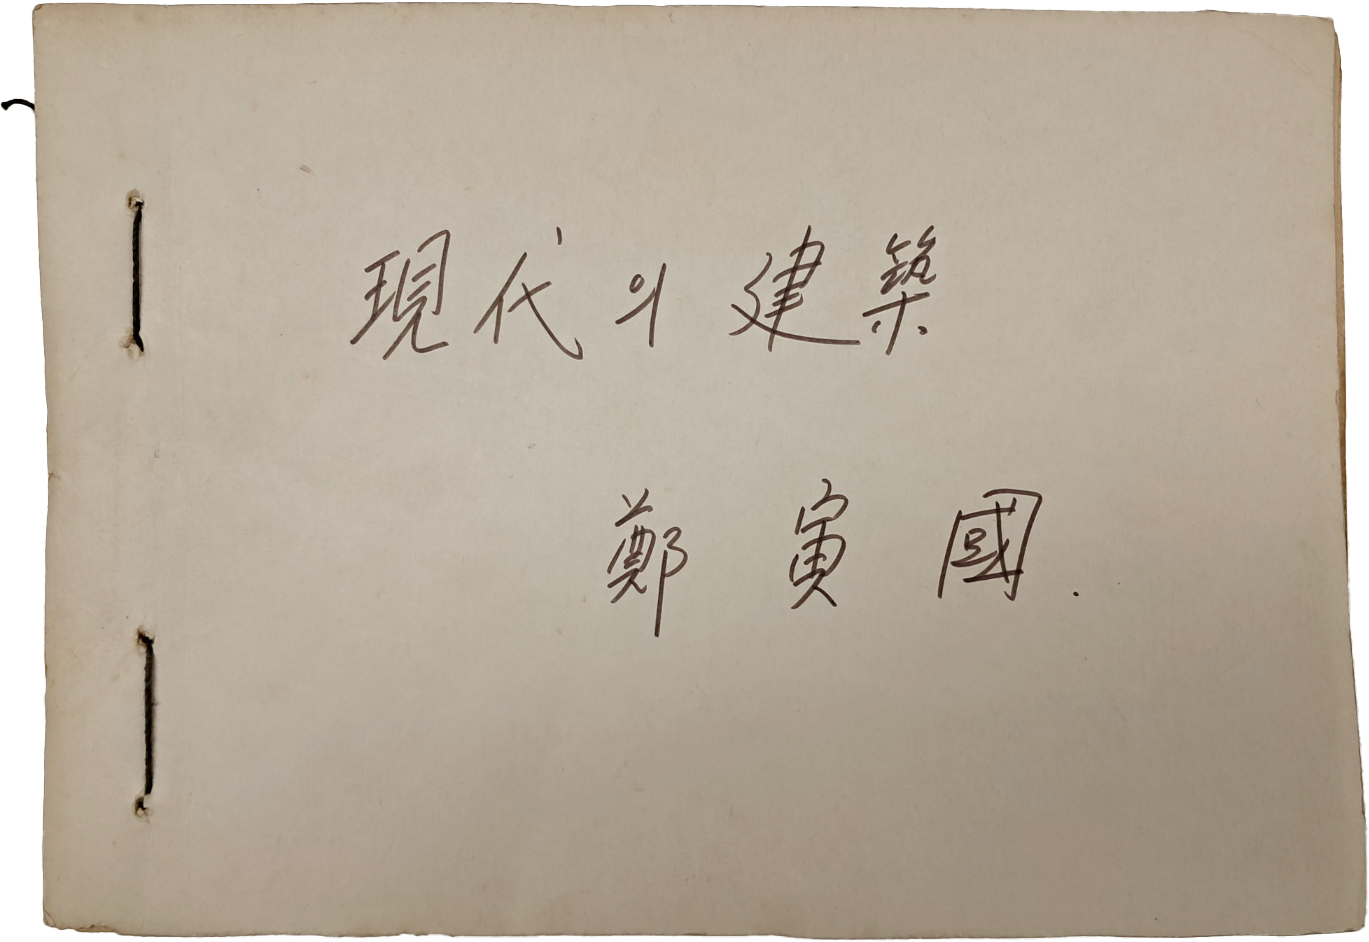 現代의 建築
鄭寅國.